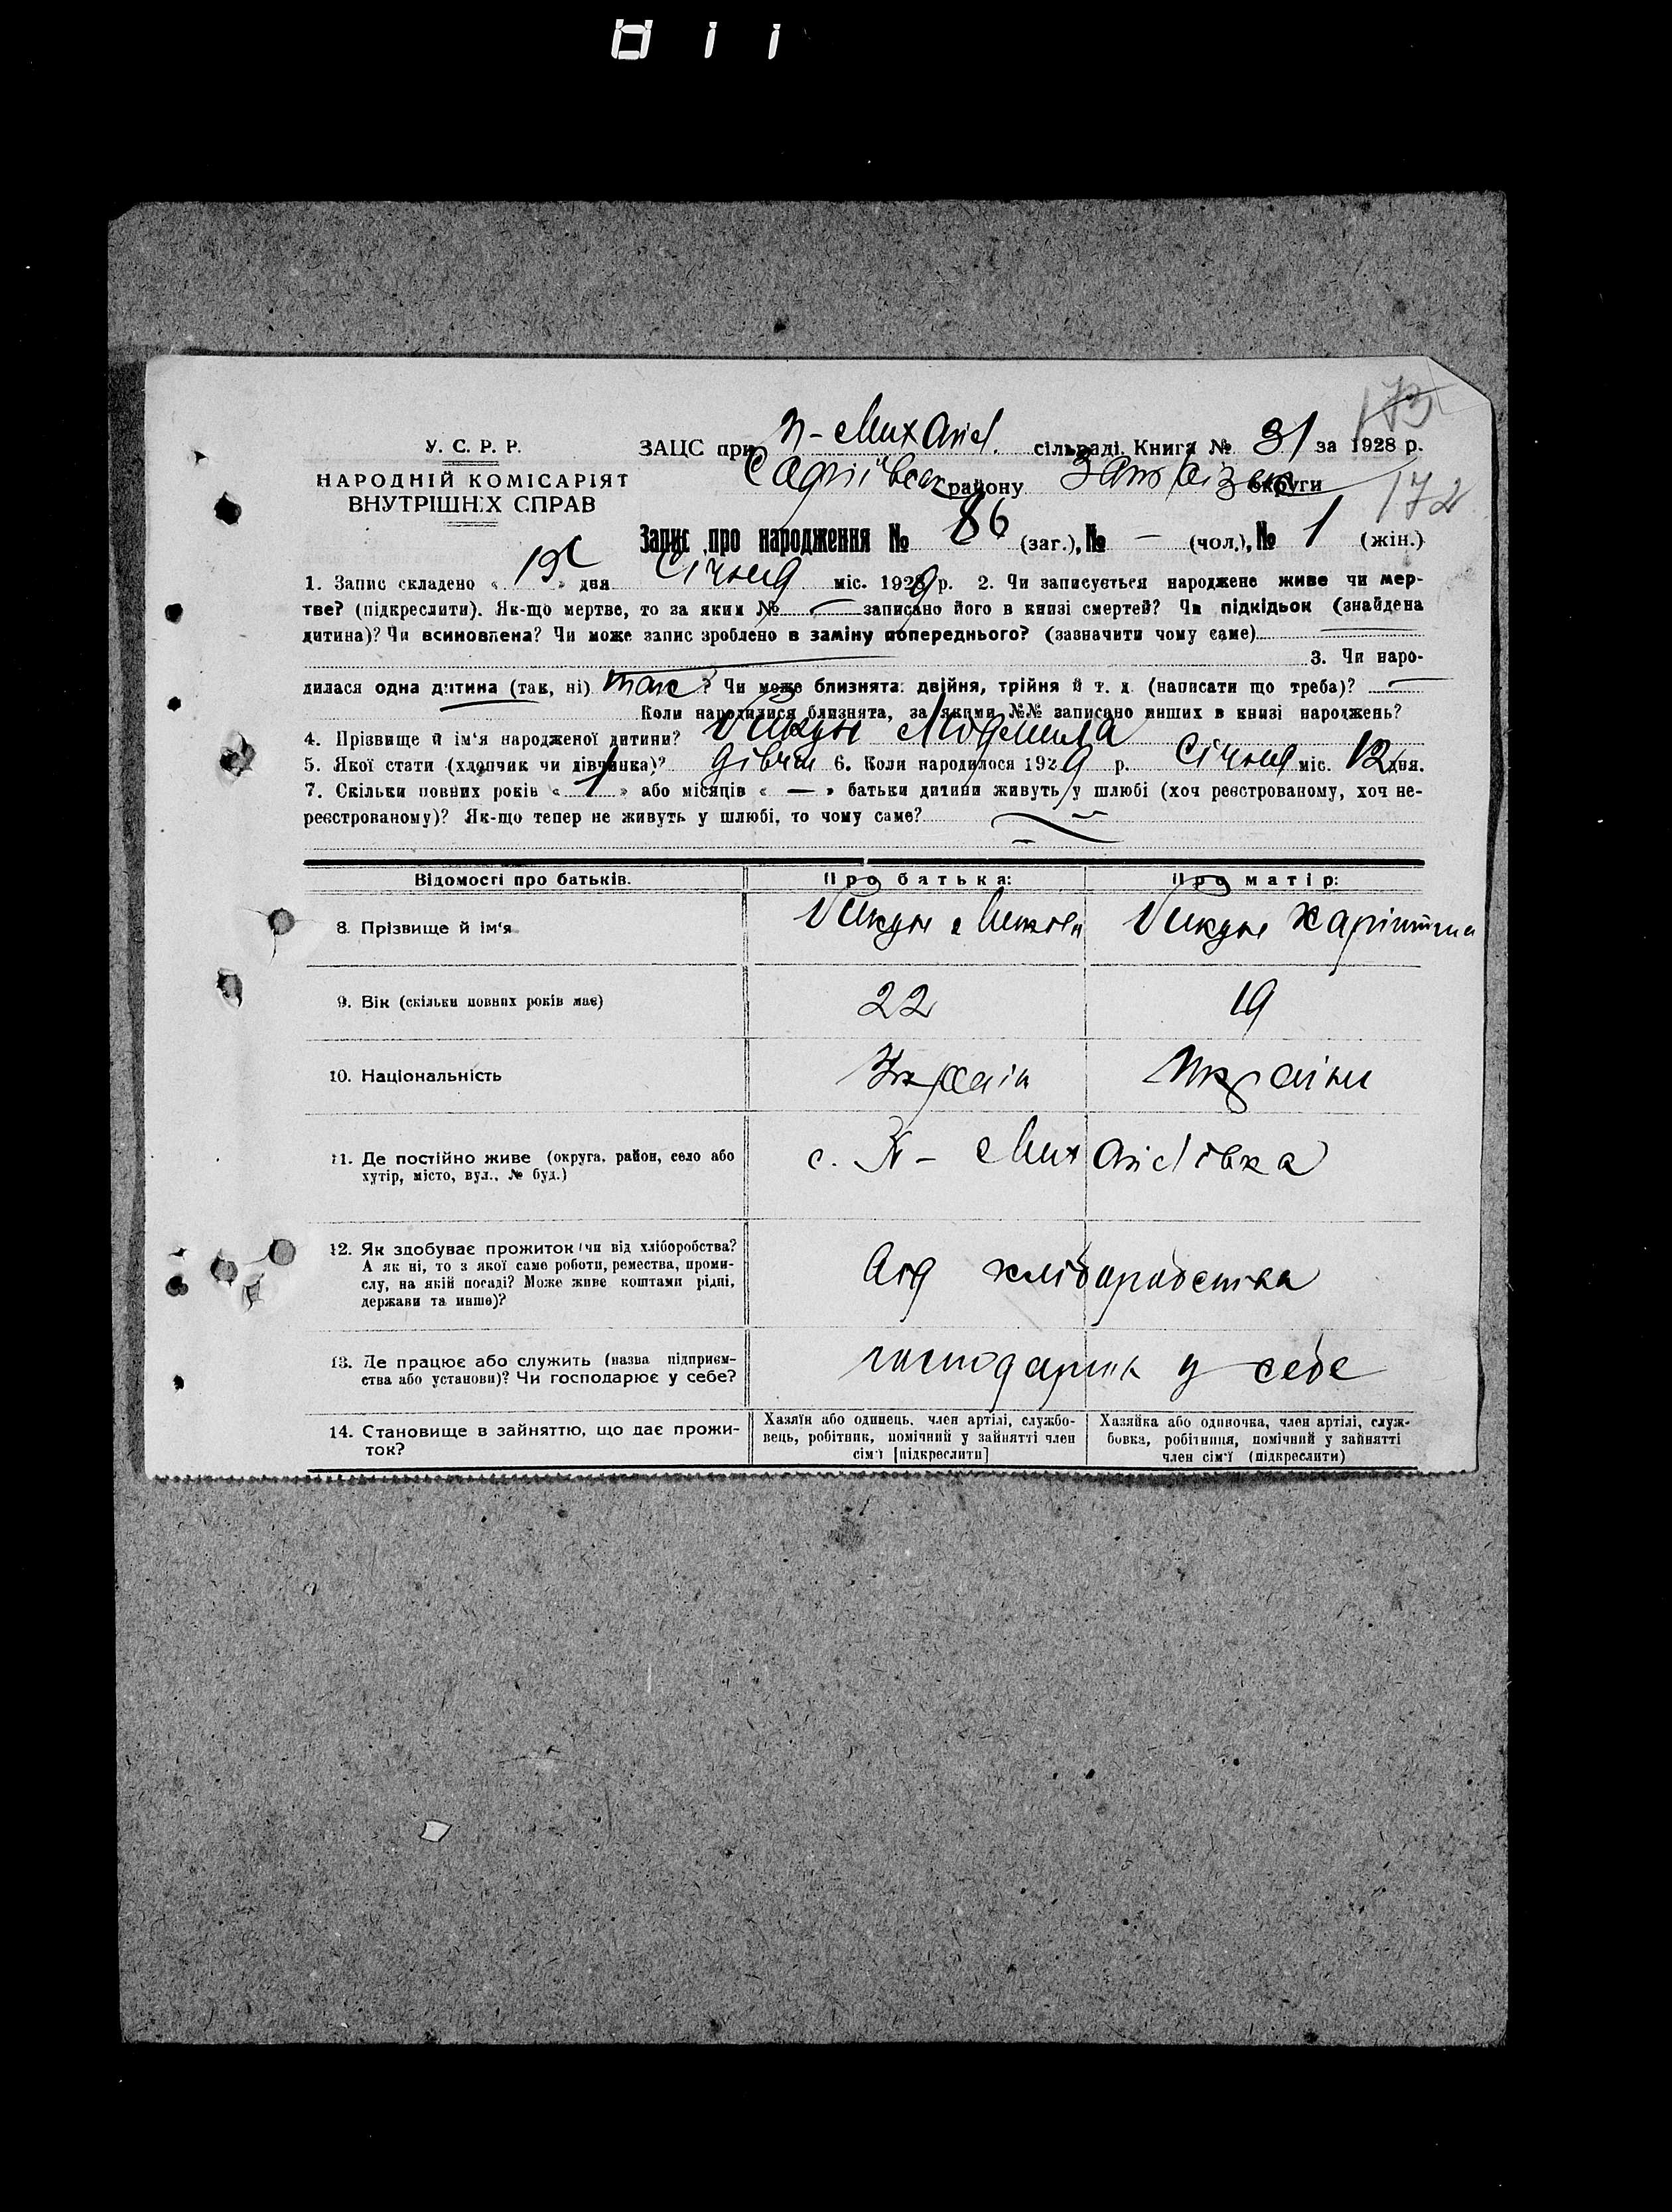 173
У. С. Р. Р.
НАРОДНІЙ КОМІСАРІЯТ
ВНУТРІШНІХ СПРАВ
ЗАЦС при Н-Михайл. сільраді. Книга № 31 за 1928 р.
району Запорізьк округи
172
Запис про народження № 86 (заг.), № — (чол.), № 1 (жін.)
1. Запис складено « 19 » дня Січня міс. 1929 р. 2. Чи записується народжене живе чи мер-
тве? (підкреслити). Як-що мертве, то за яким № — записано його в книзі смертей? Чи підкідьок (знайдена
дитина)? Чи всиновлена? Чи може запис зроблено в заміну попереднього? (зазначити чому саме)
3. Чи наро-
дилася одна дитина (так, ні) так ? Чи може близнята: двійня, трійня й т. д. (написати що треба)? —
Коли народилися близнята, за якими №№ записано инших в книзі народжень?
4. Прізвище й ім'я народженої дитини? Пикун Людмила
5. Якої стати (хлопчик чи дівчинка)? дівчи 6. Коли народилося 1929 р. Січня міс. 12 дня.
7. Скільки повних років « 1 » або місяців « — » батьки дитини живуть у шлюбі (хоч реєстрованому, хоч не-
реєстрованому)? Як-що тепер не живуть у шлюбі, то чому саме?
Відомості про батьків. Про батька: Про матір:
8. Прізвище й ім'я Пикун Пикун
9. Вік (скільки повних років має) 22 19
10. Національність Україн Україн
11. Де постійно живе (округа, район, село або
хутір, місто, вул., № буд.) с. Н- Михайлівка
12. Як здобуває прожиток (чи від хліборобства?
А як ні, то з якої саме роботи, ремества, проми-
слу, на якій посаді? Може живе коштами рідні,
держави та инше)? Від хліборобства
13. Де працює або служить (назва підприєм-
ства або установи)? Чи господарює у себе? у себе
14. Становище в зайняттю, що дає прожи-
ток?
Хазяїн або одинець, член артілі, службо-
вець, робітник, помічний у зайнятті член
сім'ї [підкреслити]
Хазяйка або одиночка, член артілі, служ-
бовка, робітниця, помічний у зайнятті
член сім'ї (підкреслити)